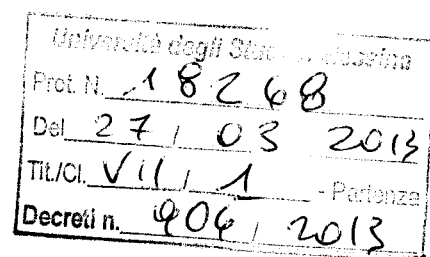 Università degli Studi Messina
Prot. N. 18268
Del 27 / 03 2013
Tit./Cl. VII / 1 - Partenza
Decreti n. 906 / 2013